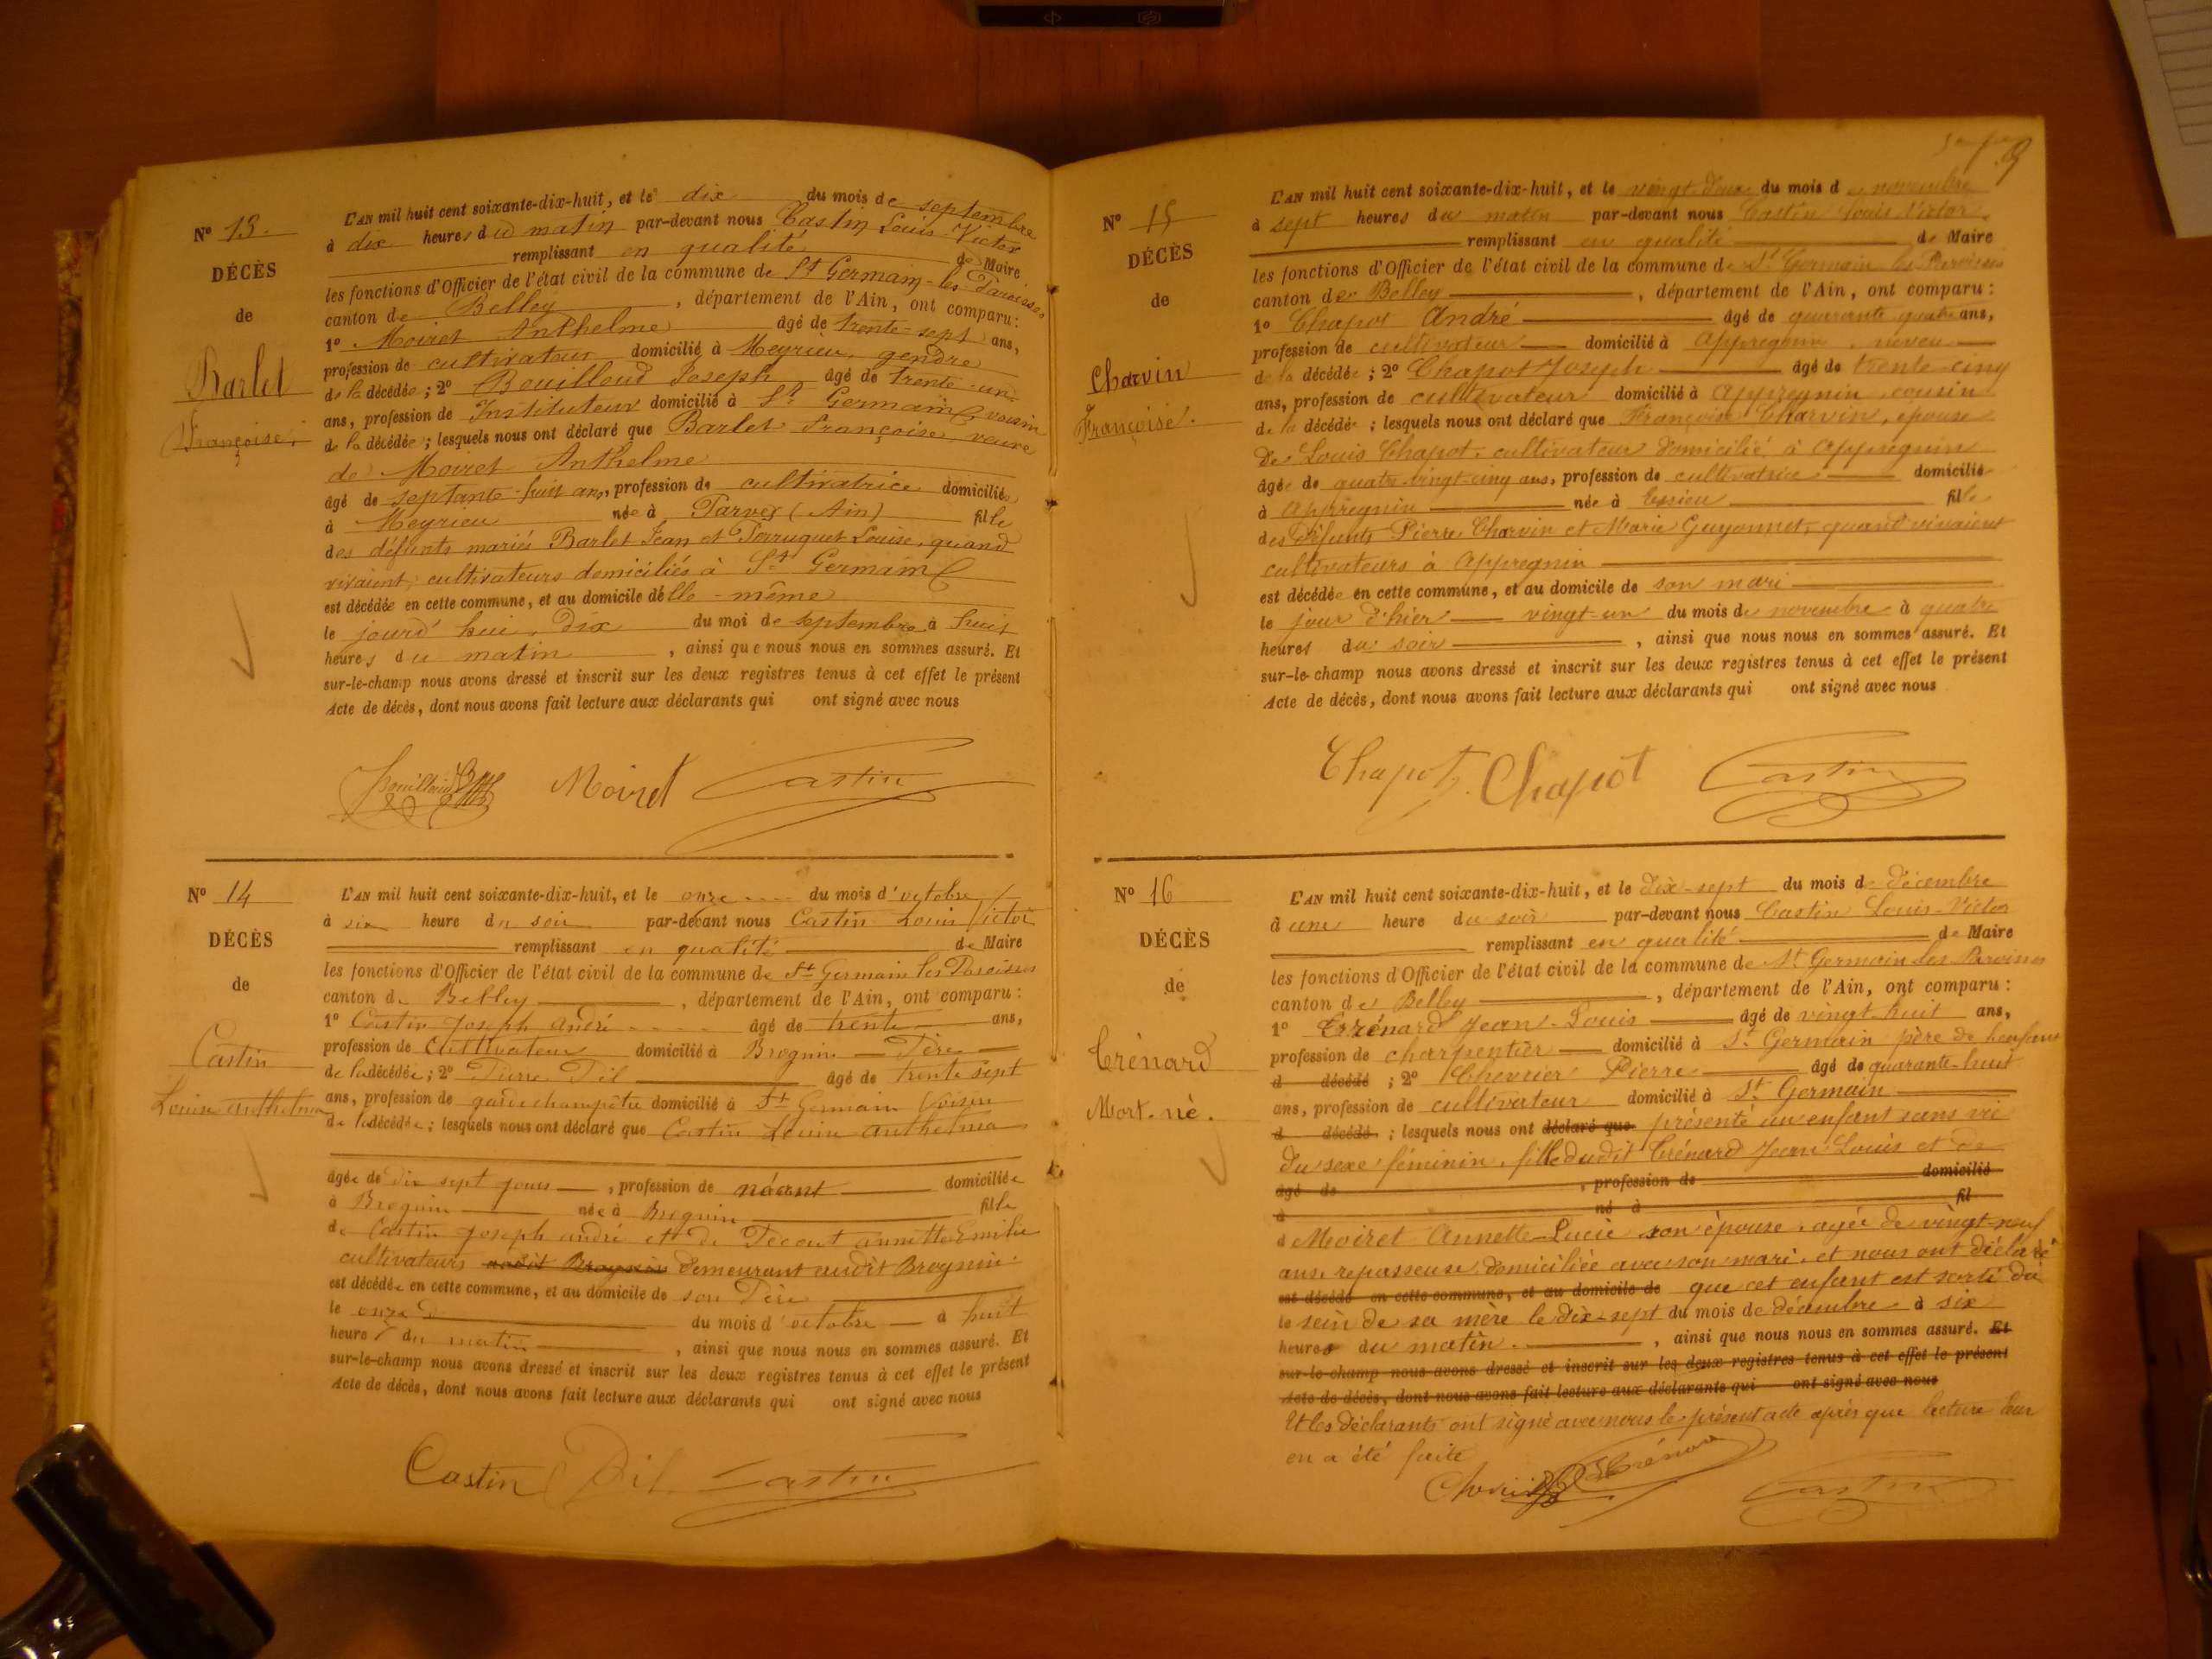 N° 13.
DÉCÈS
de
Barlet
Françoise
L'AN mil huit cent soixante-dix-huit, et le dix du mois de septembre
à dix heures du matin par-devant nous Castin Louis Victor
remplissant en qualité de Maire
les fonctions d'Officier de l'état civil de la commune de St Germain-les-Paroisses
canton de Belley, département de l'Ain, ont comparu :
1° Moiret Anthelme âgé de trente-sept ans,
profession de cultivateur domicilié à Meyrieu, gendre
de la décédée ; 2° Bouilloud Joseph âgé de trente-un
ans, profession de Instituteur domicilié à St Germain, voisin
de la décédée ; lesquels nous ont déclaré que Barlet Françoise, veuve
de Moiret Anthelme
âgé de septante-huit ans, profession de cultivatrice domiciliée
à Meyrieu née à Parves (Ain) fille
des défunts mariés Barlet Jean et Ferruquet Louise, quand
vivaient, cultivateurs domiciliés à St Germain
est décédée en cette commune, et au domicile d'elle-même
le jourd'hui, dix du moi de septembre à huit
heures du matin, ainsi que nous nous en sommes assuré. Et
sur-le-champ nous avons dressé et inscrit sur les deux registres tenus à cet effet le présent
Acte de décès, dont nous avons fait lecture aux déclarants qui ont signé avec nous
Bouilloud Moiret Castin
N° 14
DÉCÈS
de
Castin
Louise Anthelma
L'AN mil huit cent soixante-dix-huit, et le onze du mois d'octobre
à six heure du soir par-devant nous Castin Louis Victor
remplissant en qualité de Maire
les fonctions d'Officier de l'état civil de la commune de St Germain les Paroisses
canton de Belley, département de l'Ain, ont comparu :
1° Castin Joseph André âgé de trente ans,
profession de Cultivateur domicilié à Brognin Père
de la décédée ; 2° Pierre Pil âgé de trente sept
ans, profession de garde champêtre domicilié à St Germain Voisin
de la décédée ; lesquels nous ont déclaré que Castin Louise Anthelma
âgée de dix sept jours, profession de néant domiciliée
à Brognin née à Brognin fille
de Castin Joseph André et de annette Emilie
cultivateurs audit Brognin demeurant audit Brognin
est décédée en cette commune, et au domicile de son Père
le onze du mois d'octobre à huit
heure du matin, ainsi que nous nous en sommes assuré. Et
sur-le-champ nous avons dressé et inscrit sur les deux registres tenus à cet effet le présent
Acte de décès, dont nous avons fait lecture aux déclarants qui ont signé avec nous
Castin Pil Castin
N° 15
DÉCÈS
de
Charvin
Françoise.
L'AN mil huit cent soixante-dix-huit, et le vingt-deux du mois de novembre
à sept heures du matin par-devant nous Castin Louis Victor
remplissant en qualité de Maire
les fonctions d'Officier de l'état civil de la commune de St Germain les Paroisses
canton de Belley, département de l'Ain, ont comparu :
1° Chapot André âgé de quarante quatre ans,
profession de cultivateur domicilié à Appregnin, neveu
de la décédée ; 2° Chapot Joseph âgé de trente-cinq
ans, profession de cultivateur domicilié à Appregnin, cousin
de la décédée ; lesquels nous ont déclaré que Françoise Charvin, épouse
de Louis Chapot, cultivateur domicilié à Appregnin
âgée de quatre-vingt-cinq ans, profession de cultivatrice domicilié
à Appregnin née à Essieu fille
des défunts Pierre Charvin et Marie Guyonnet, quand vivaient
cultivateurs à Appregnin
est décédée en cette commune, et au domicile de son mari
le jour d'hier vingt-un du mois de novembre à quatre
heures du soir, ainsi que nous nous en sommes assuré. Et
sur-le-champ nous avons dressé et inscrit sur les deux registres tenus à cet effet le présent
Acte de décès, dont nous avons fait lecture aux déclarants qui ont signé avec nous
Chapot Chapot Castin
N° 16
DÉCÈS
de
Trénard
Mort-né.
L'AN mil huit cent soixante-dix-huit, et le dix-sept du mois de décembre
à une heure du soir par-devant nous Castin Louis-Victor
remplissant en qualité de Maire
les fonctions d'Officier de l'état civil de la commune de St Germain-les-Paroisses
canton de Belley, département de l'Ain, ont comparu :
1° Trénard Jean-Louis âgé de vingt-huit ans,
profession de charpentier domicilié à St Germain père de l'enfant
d décédé ; 2° Chevrier Pierre âgé de quarante-huit
ans, profession de cultivateur domicilié à St Germain
d décédé ; lesquels nous ont déclaré que présenté un enfant sans vie
du sexe féminin, fille dudit Trénard Jean Louis et de
âgé de, profession de domicilié
à né à fil
d Moiret Annette-Lucie son épouse, agée de vingt-neuf
ans, repasseuse domiciliée avec son mari, et nous ont déclaré
est décédé en cette commune, et au domicile de que cet enfant est sorti du
le sein de sa mère le dix-sept du mois de décembre à six
heures du matin, ainsi que nous nous en sommes assuré. Et
sur-le-champ nous avons dressé et inscrit sur les deux registres tenus à cet effet le présent
Acte de décès, dont nous avons fait lecture aux déclarants qui ont signé avec nous
Et les déclarants ont signé avec nous le présent acte après que lecture leur
en a été faite
Trénard Castin